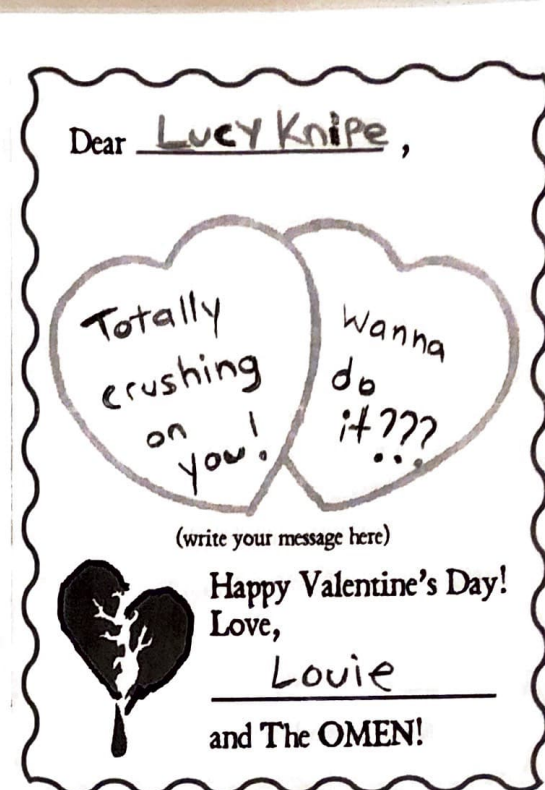 Dear Lucy Knipe,
Totally
crushing
on
you!
Wanna
do
it???
(write your message here)
Happy Valentine's Day!
Love,
Louie
and The OMEN!